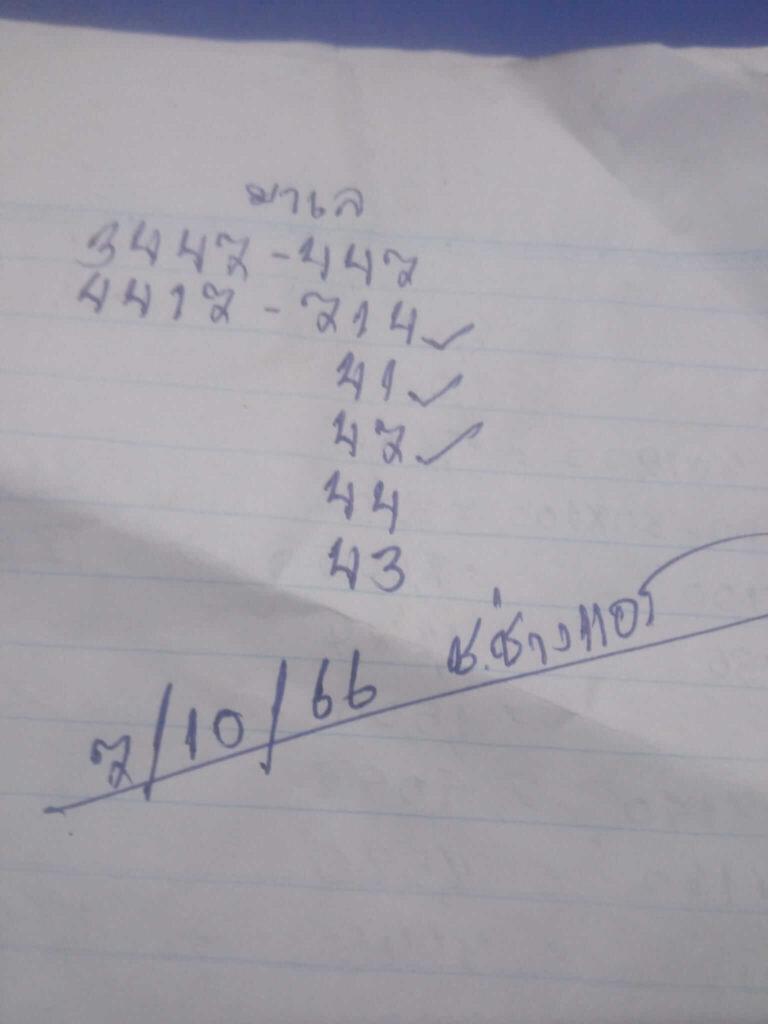 มาเล
3447 - 447
4417 - 714 ✓
41 ✓
47 ✓
44
43
7/10/66 ช.ช่างแอร์